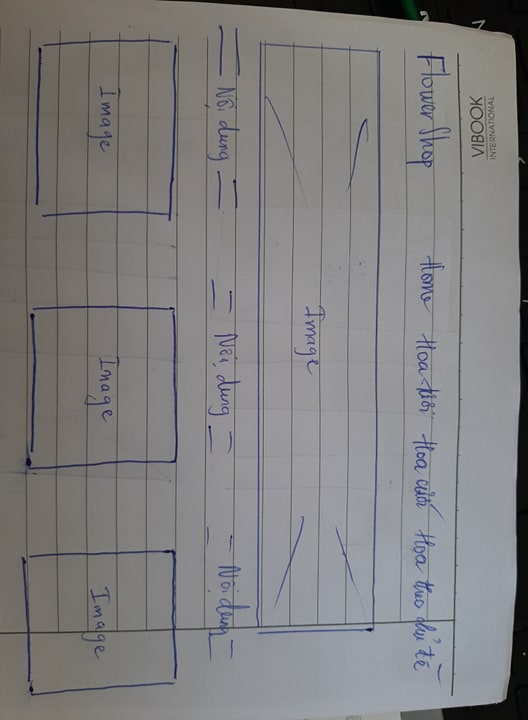 VIBOOK
INTERNATIONAL
Flower Shop Home Hoa tươi Hoa cưới Hoa theo chủ đề
Image
Nội dung Nội dung Nội dung
Image Image Image